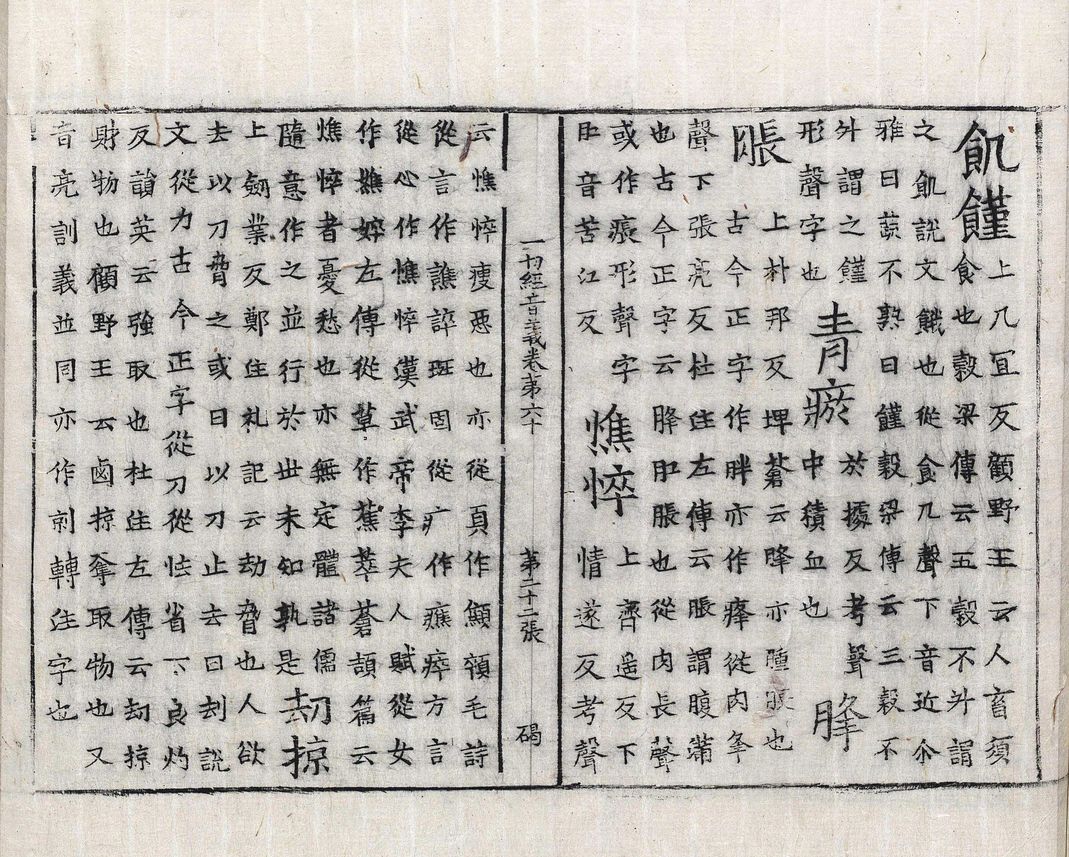 飢饉上几冝反顧野王云人畜須
食也糓梁傳云五糓不升謂
之飢說文餓也從食几聲下音近尒
雅曰蔬不熟曰饉糓梁傳云三糓不
升謂之饉
形聲字也
青瘀於據反考聲
中積血也
膖
脹上朴邦反埤蒼云膖亦腫脹也
古今正字作胖亦作瘴從肉夆
聲下張亮反杜注左傳云脹謂腹滿
也古今正字云膖肛脹也從肉長聲
或作痮形聲字
肛音苦江反
憔悴上齊遥反下
情遂反考聲
一切經音義卷第六十 第二十二張 碣
云憔悴瘦惡也亦從頁作顦顇毛詩
從言作譙誶班固從疒作癄瘁方言
從心作憔悴漢武帝李夫人賦從女
作嫶左傳從草作蕉萃蒼頡篇云
憔悴者憂愁也亦無定體諸儒
隨意作之並行於世未知孰是
劫掠
上劒業反鄭注礼記云劫脅也人欲
去以刀脅之或曰以刀止去曰刦說
文從力古今正字從刀從怯省下良灼
反韻英云強取也杜注左傳云劫掠
財物也顧野王云鹵掠奪取物也又
音亮訓義並同亦作剠轉注字也